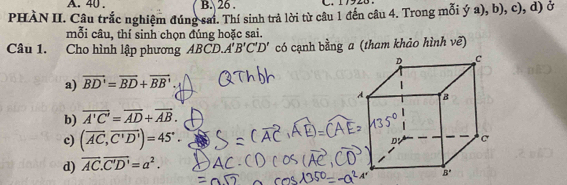 A. 40. B. 26. C. 17920.
PHẦN II. Câu trắc nghiệm đúng sai. Thí sinh trả lời từ câu 1 đến câu 4. Trong mỗi ý a), b), c), d) ở
mỗi câu, thí sinh chọn đúng hoặc sai.
Câu 1. Cho hình lập phương ABCD.A'B'C'D' có cạnh bằng a (tham khảo hình vẽ)
a) BD' = BD + BB'. Đ QThbh
b) A'C' = AD + AB. Đ
c) (AC, C'D') = 45°. S = (AC, AE) = CAE = 135°
d) AC.C'D' = a². AC.CD cos(AC, CD)
= a√2 a cos135° = -a²
D
C
A
B
D'
C'
A'
B'